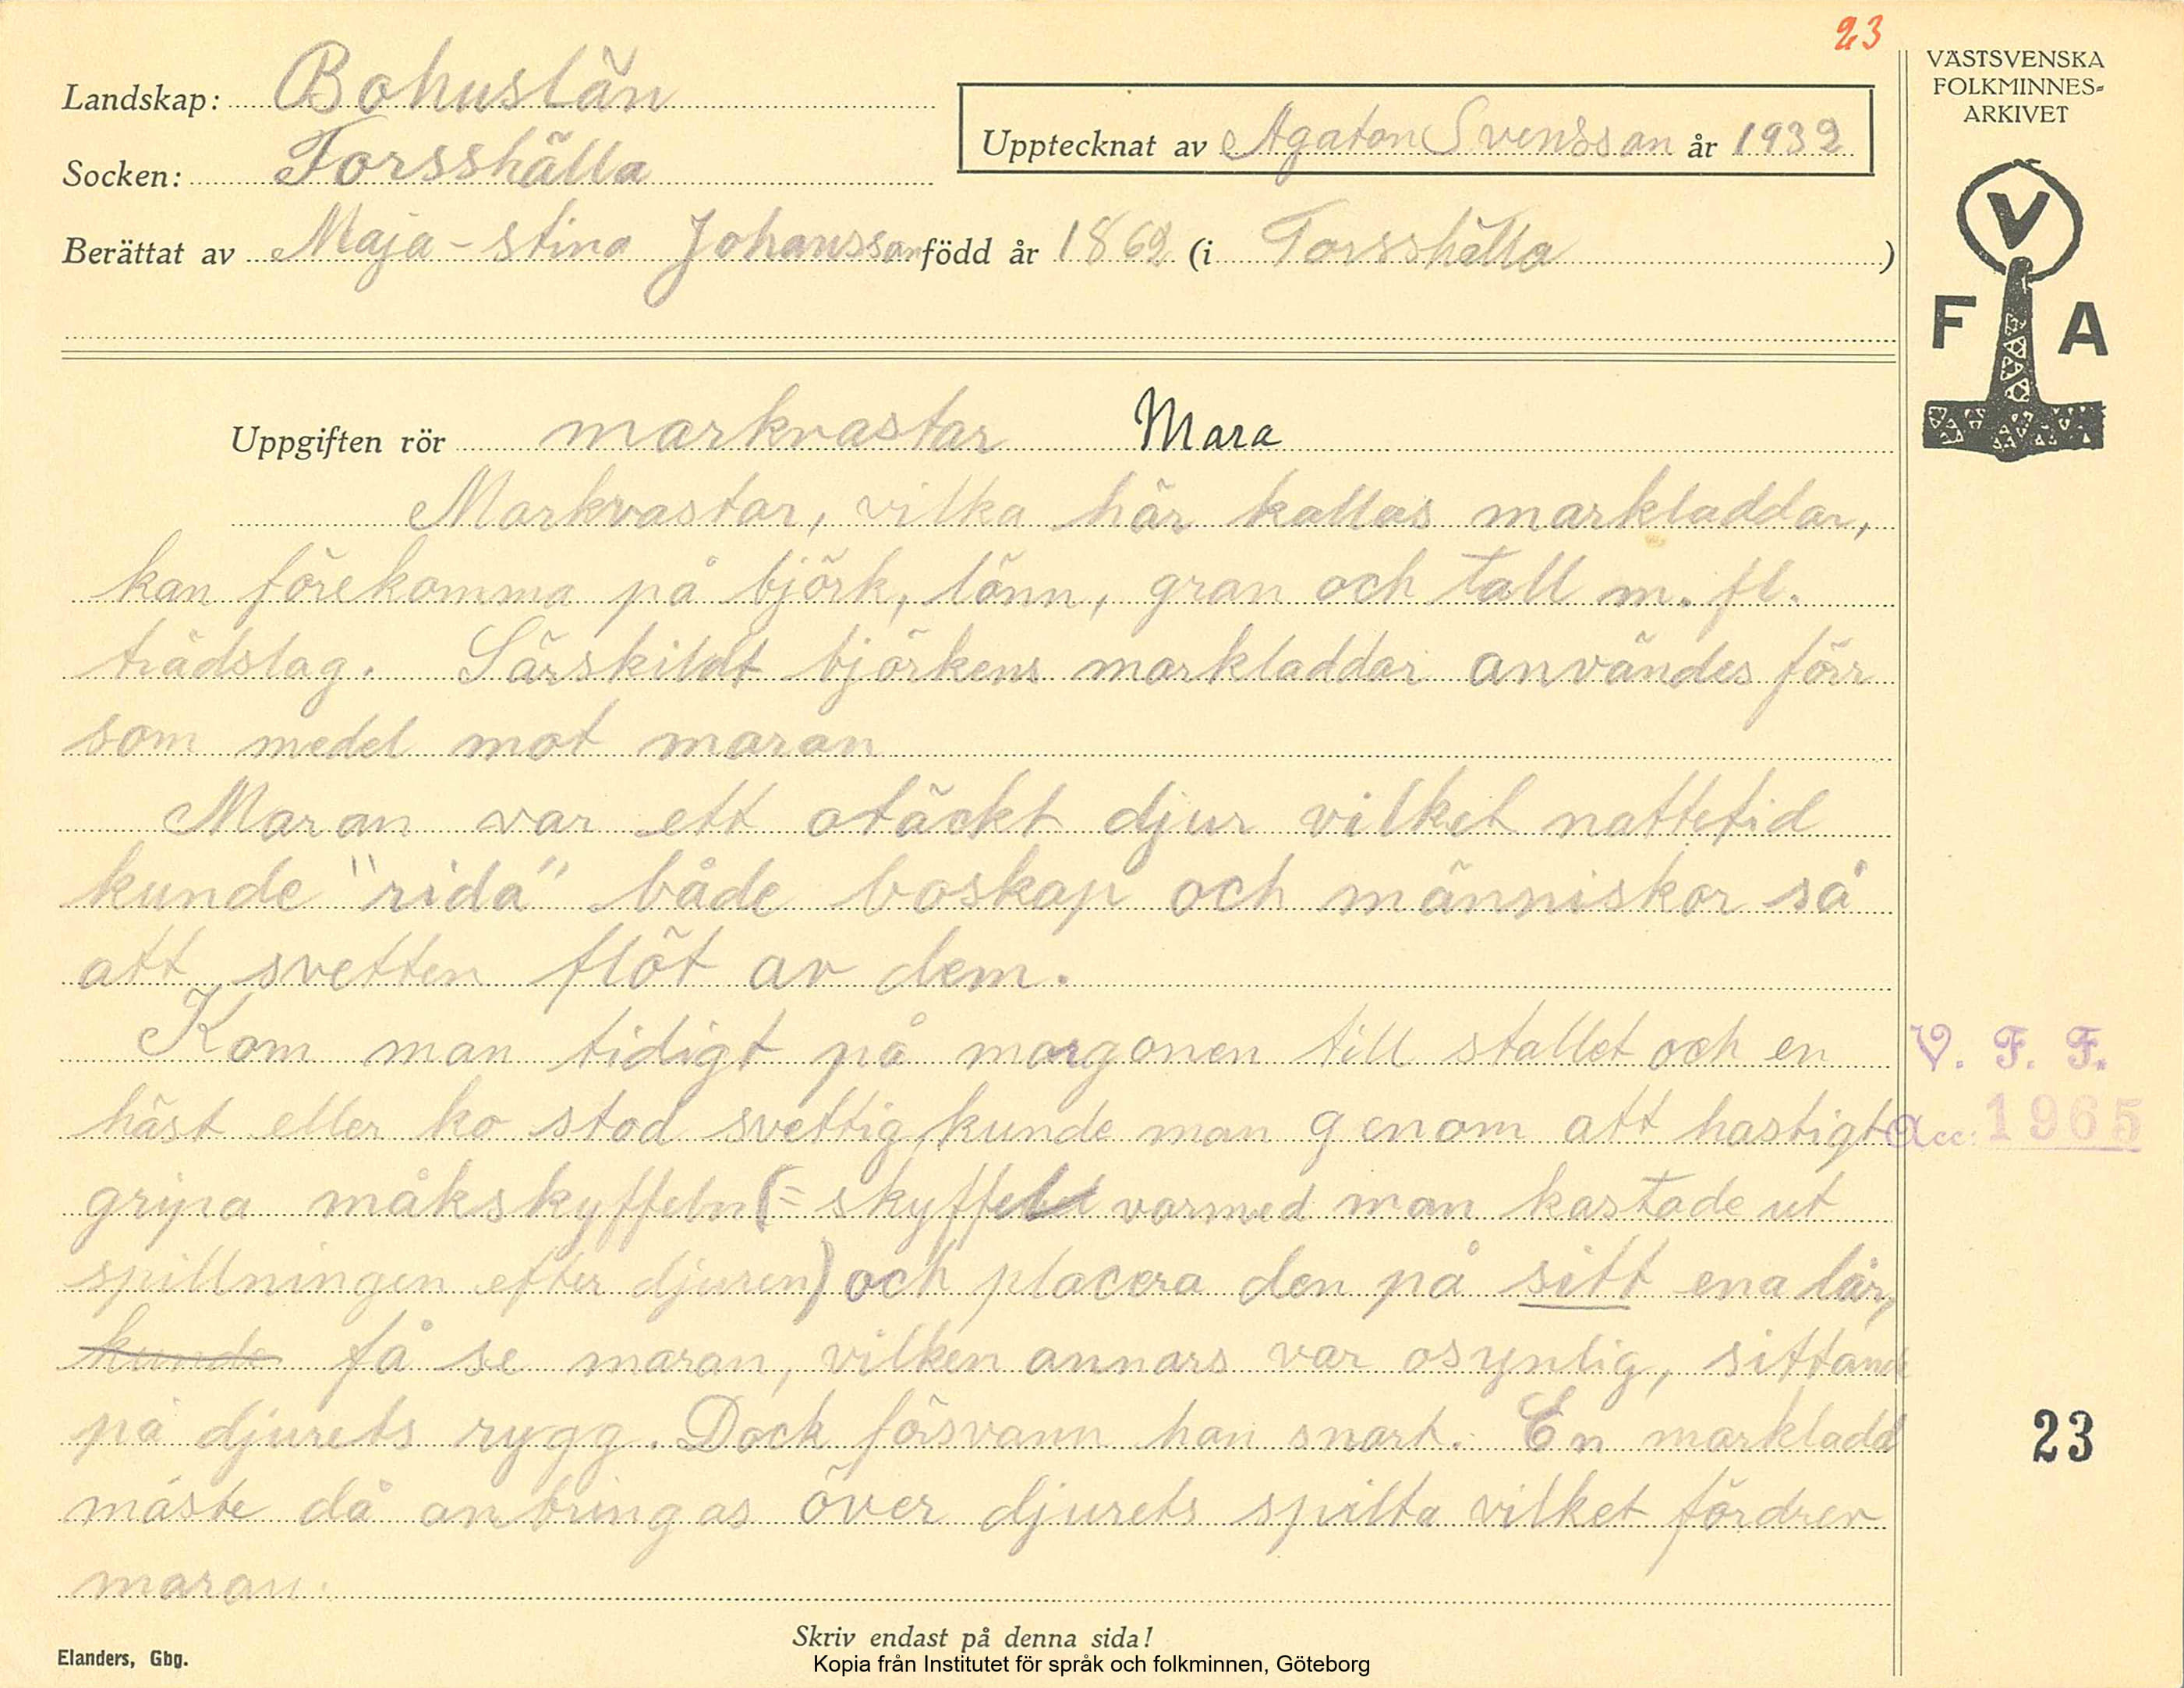 23
VÄSTSVENSKA
FOLKMINNES-
ARKIVET
V
F A
Landskap: Bohuslän
Upptecknat av Agaton Svensson år 1932
Socken: Forsshälla
Berättat av Maja-stina Johansson född år 1862 (i Forsshälla)
Uppgiften rör markvastar Mara
Markvastar, vilka här kallas markladdar,
kan förekomma på björk, lönn, gran och tall m. fl.
trädslag. Särskildt björkens markladdar användes förr
som medel mot maran
Maran var ett otäckt djur vilket nattetid
kunde "rida" både boskap och människor så
att svetten flöt av dem.
Kom man tidigt på morgonen till stallet och en
häst eller ko stod svettig, kunde man genom att hastigt
gripa måkskyffeln (= skyffel varmed man kastade ut
spillningen efter djuren) och placera den på sitt ena lår,
kunde få se maran, vilken annars var osynlig, sittande
på djurets rygg. Dock försvann han snart. En markladd
måste då anbringas över djurets spilta vilket fördrev
maran.
V. F. F.
Acc: 1965
23
Skriv endast på denna sida!
Elanders, Gbg.
Kopia från Institutet för språk och folkminnen, Göteborg